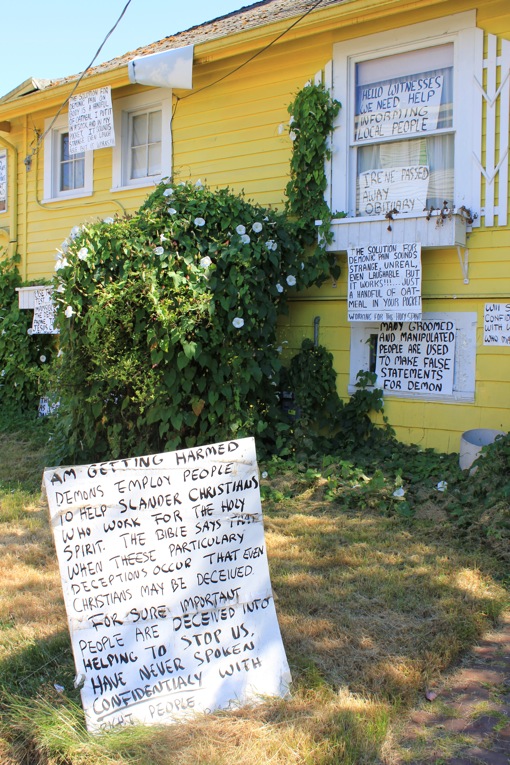 DEMONIC PAIN ON
BODY IS A HANDFUL
OF OATMEAL I PUT
HELLO WITNESSES
WE NEED HELP
INFORMING
LOCAL PEOPLE
IRENE PASSED
AWAY
OBITUARY
THE SOLUTION FOR
DEMONIC PAIN SOUNDS
STRANGE, UNREAL,
EVEN LAUGHABLE BUT
IT WORKS!!!... JUST
A HANDFUL OF OAT-
MEAL IN YOUR POCKET
WORKING FOR THE HOLY SPIRIT
MANY GROOMED
AND MANIPULATED
PEOPLE ARE USED
TO MAKE FALSE
STATEMENTS
FOR DEMON
AM GETTING HARMED
DEMONS EMPLOY PEOPLE
TO HELP SLANDER CHRISTIANS
WHO WORK FOR THE HOLY
SPIRIT. THE BIBLE SAYS THAT
WHEN THEESE PARTICULARY
DECEPTIONS OCCUR THAT EVEN
CHRISTIANS MAY BE DECEIVED.
FOR SURE IMPORTANT
PEOPLE ARE DECEIVED INTO
HELPING TO STOP US.
HAVE NEVER SPOKEN
CONFIDENTIALY WITH
RIGHT PEOPLE